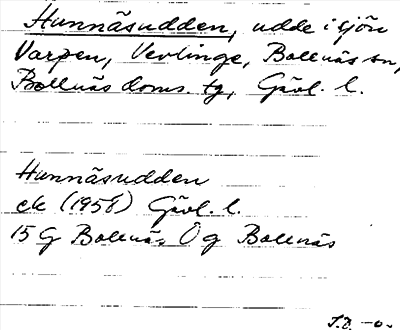 Hunnäsudden, udde i sjön
Varpen, Vevlinge, Bollnäs sn,
Bollnäs doms. tg, Gävl. l.
Hunnäsudden
ek (1958) Gävl. l.
15 G Bollnäs Ö g Bollnäs